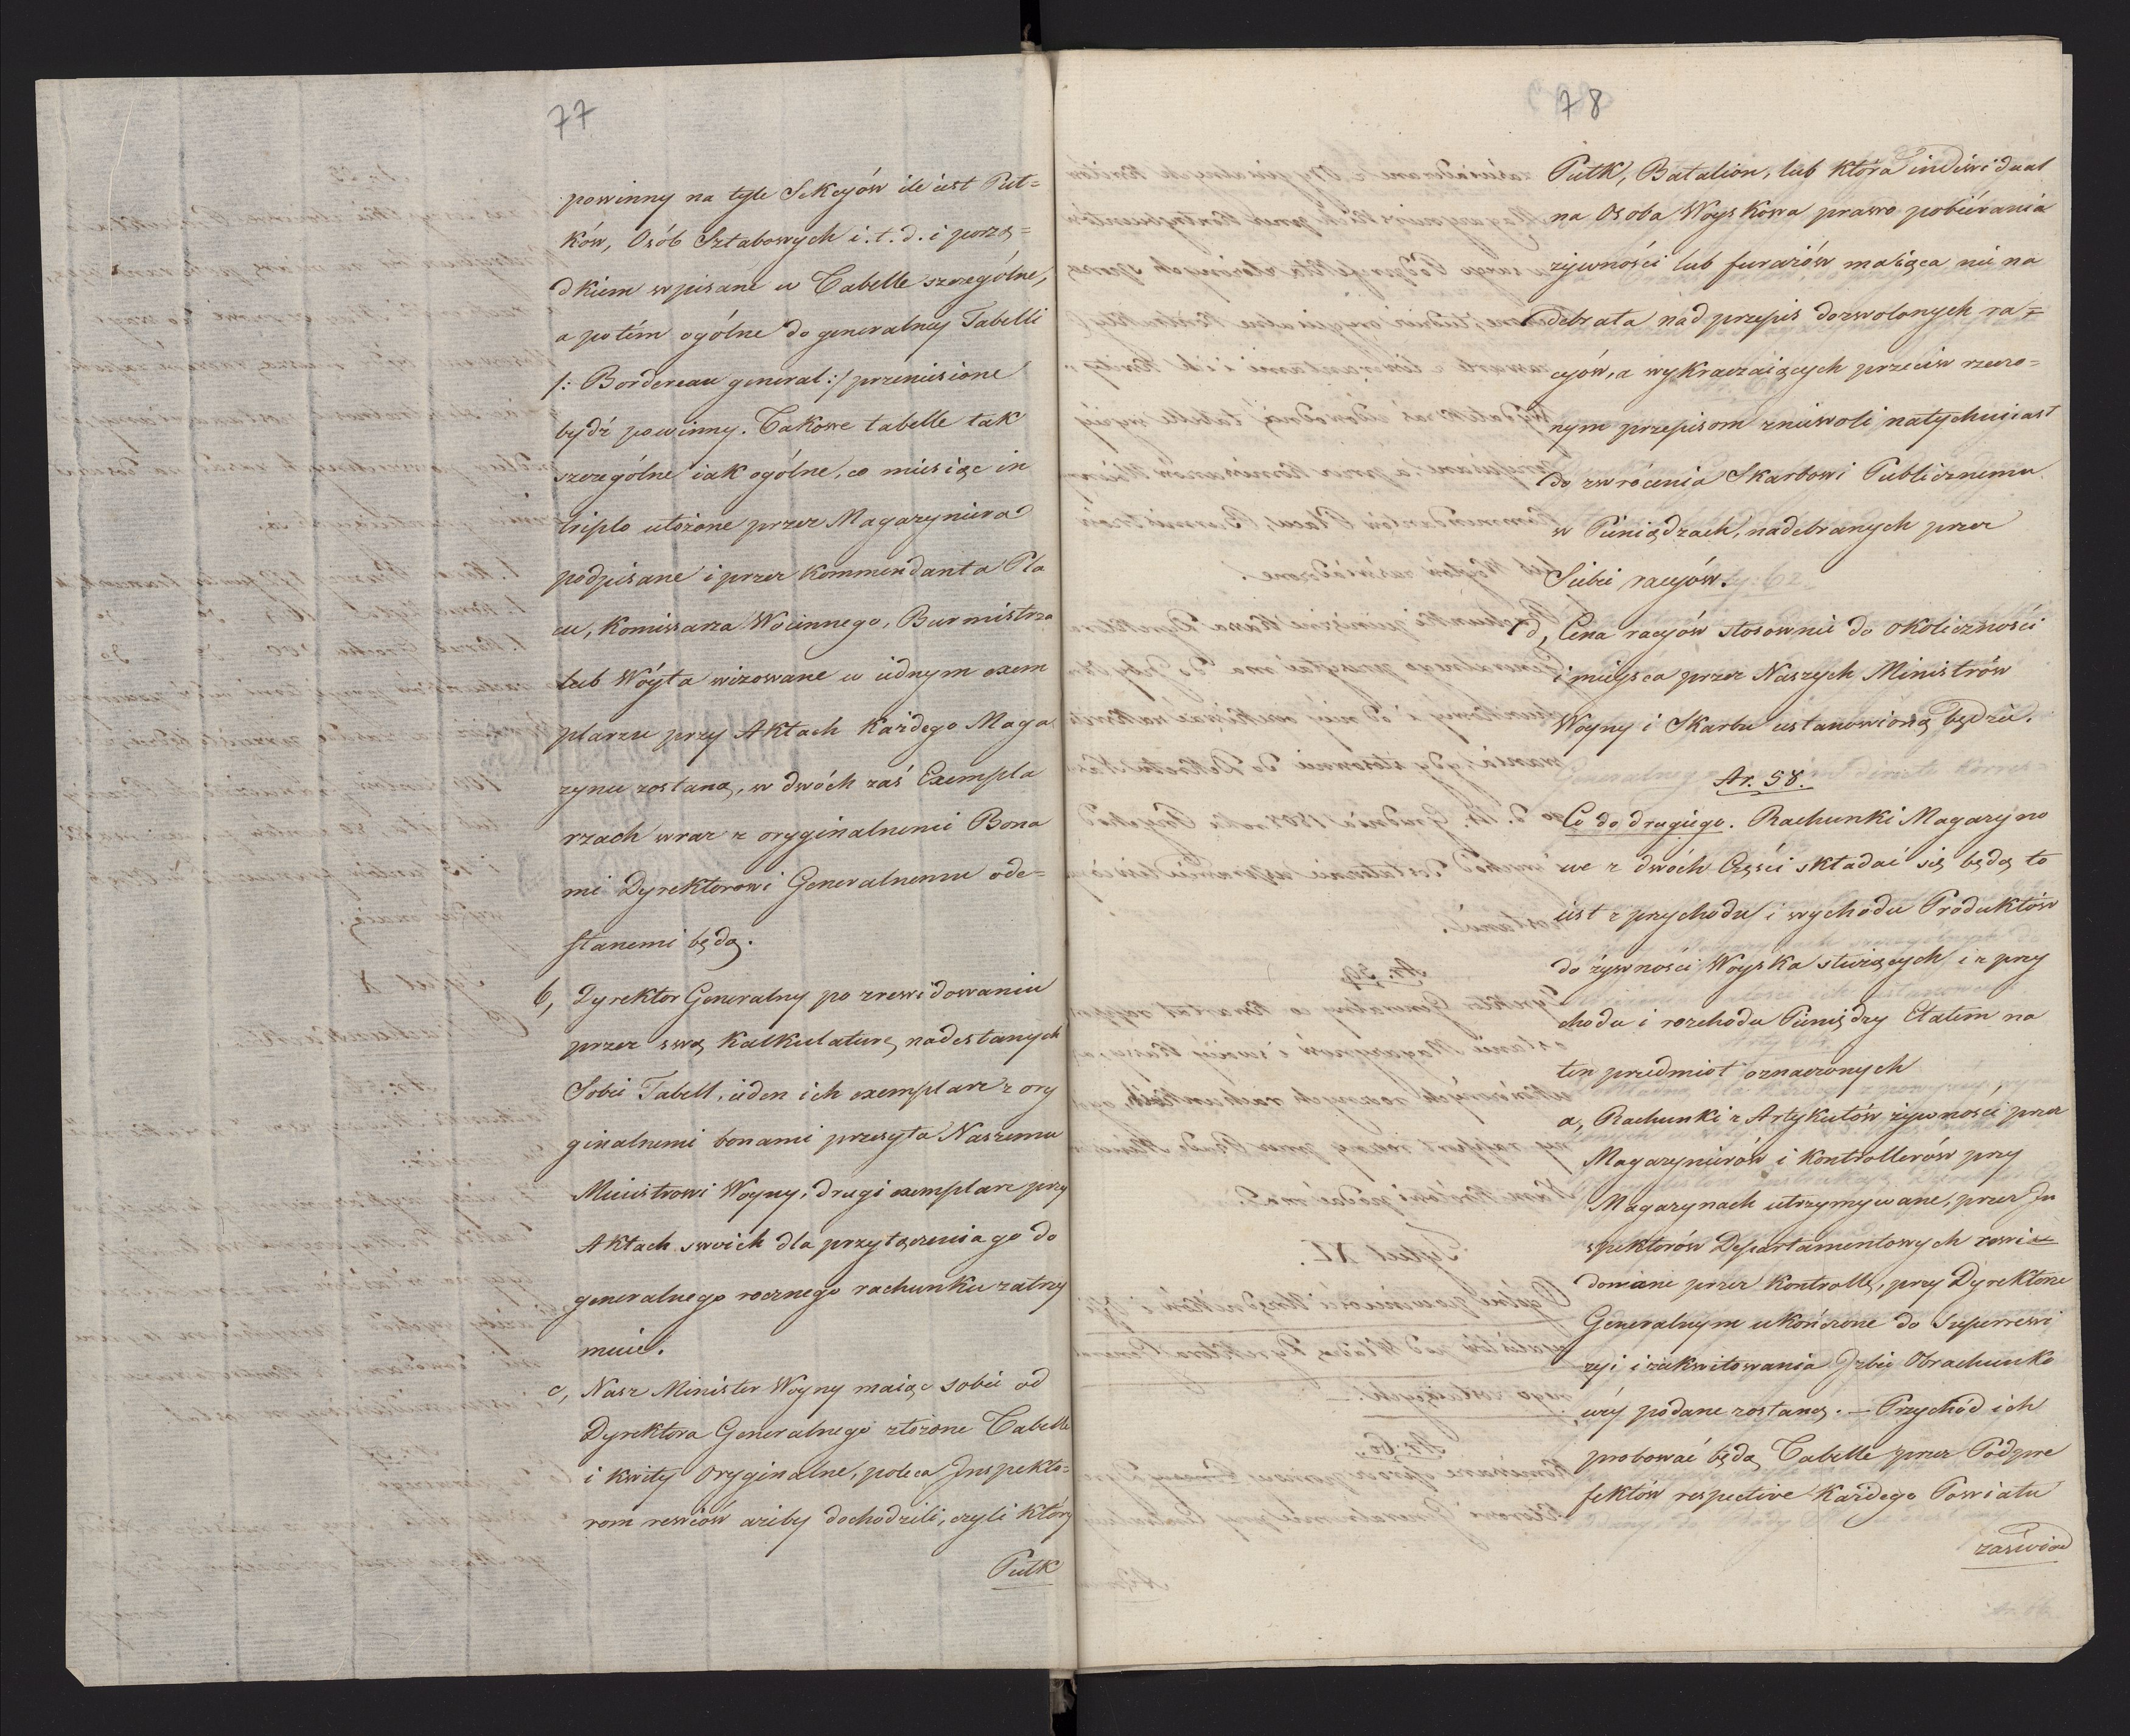 77
powinny na tyle Sekcyów ile iest Puł=
ków, Osób Sztabowych i. t. d. i porzą=
dkiem wpisane w Tabelle szczególne,
a potém ogólne do generalney Tabelli
/: Bordereau general :/ przeniesione
bydź powinny. Takowe tabelle tak
szczególne iak ogólne, co miesiąc in
triplo ułożone przez Magazyniera
podpisane i przez Kommendanta Pla
cu, Komissarza Woiennego, Burmistrza
lub Wóyta wizowane w iednym exem
plarzu przy Aktach każdego Maga
zynu zostaną, w dwóch zaś Exempla
rzach wraz z oryginalnemi Bona
mi Dyrektorowi Generalnemu ode=
słanemi będą.
b, Dyrektor Generalny po zrewidowaniu
przez swą Kalkulaturę nadesłanych
Sobie Tabell, ieden ich exemplarz z ory
ginalnemi bonami przesyła Naszemu
Ministrowi Woyny, drugi exemplarz przy
Aktach swoich dla przyłączenia go do
generalnego rocznego rachunku zatrzy
muie.
c, Nasz Minister Woyny maiąc sobie od
Dyrektora Generalnego złożone Tabelle
i kwity Oryginalne, poleca Inspekto=
rom rewiów ażeby dochodzili, czyli który
Pułk
78
Pułk, Batalion, lub która indiwidual
na Osoba Woyskowa prawo pobiérania
żywności lub furażów maiąca nie na
debrała nad przepis dozwolonych ra=
cyów, a wykraczaiących przeciw rzeczo=
nym przepisom zniewoli natychmiast
do zwrócenia Skarbowi Publicznemu
w Pieniądzach, nadebranych przez
Siebie racyów.
d, Cena racyów stosownie do okoliczności
i mieysca przez Naszych Ministrów
Woyny i Skarbu ustanowioną będzie.
Ar. 58.
Co do drugiego. Rachunki Magazyno
we z dwóch Części składać się będą to
iest z przychodu i wychodu Produktów
do żywności Woyska służących i z przy
chodu i rozchodu Pieniędzy Etatem na
ten przedmiot oznaczonych
a, Rachunki z Artykułów żywności przez
Magazynierów i Kontrollerów przy
Magazynach utrzymywane, przez In
spektorów Departamentowych rewi=
dowane przez Kontrollę, przy Dyrektorze
Generalnym ukończone do Superrewi
zyi i zakwitowania Izbie Obrachunko
wéy podane zostaną. — Przychód ich
probować będą Tabelle przez Podpre
fektów respective każdego Powiatu
zaświad